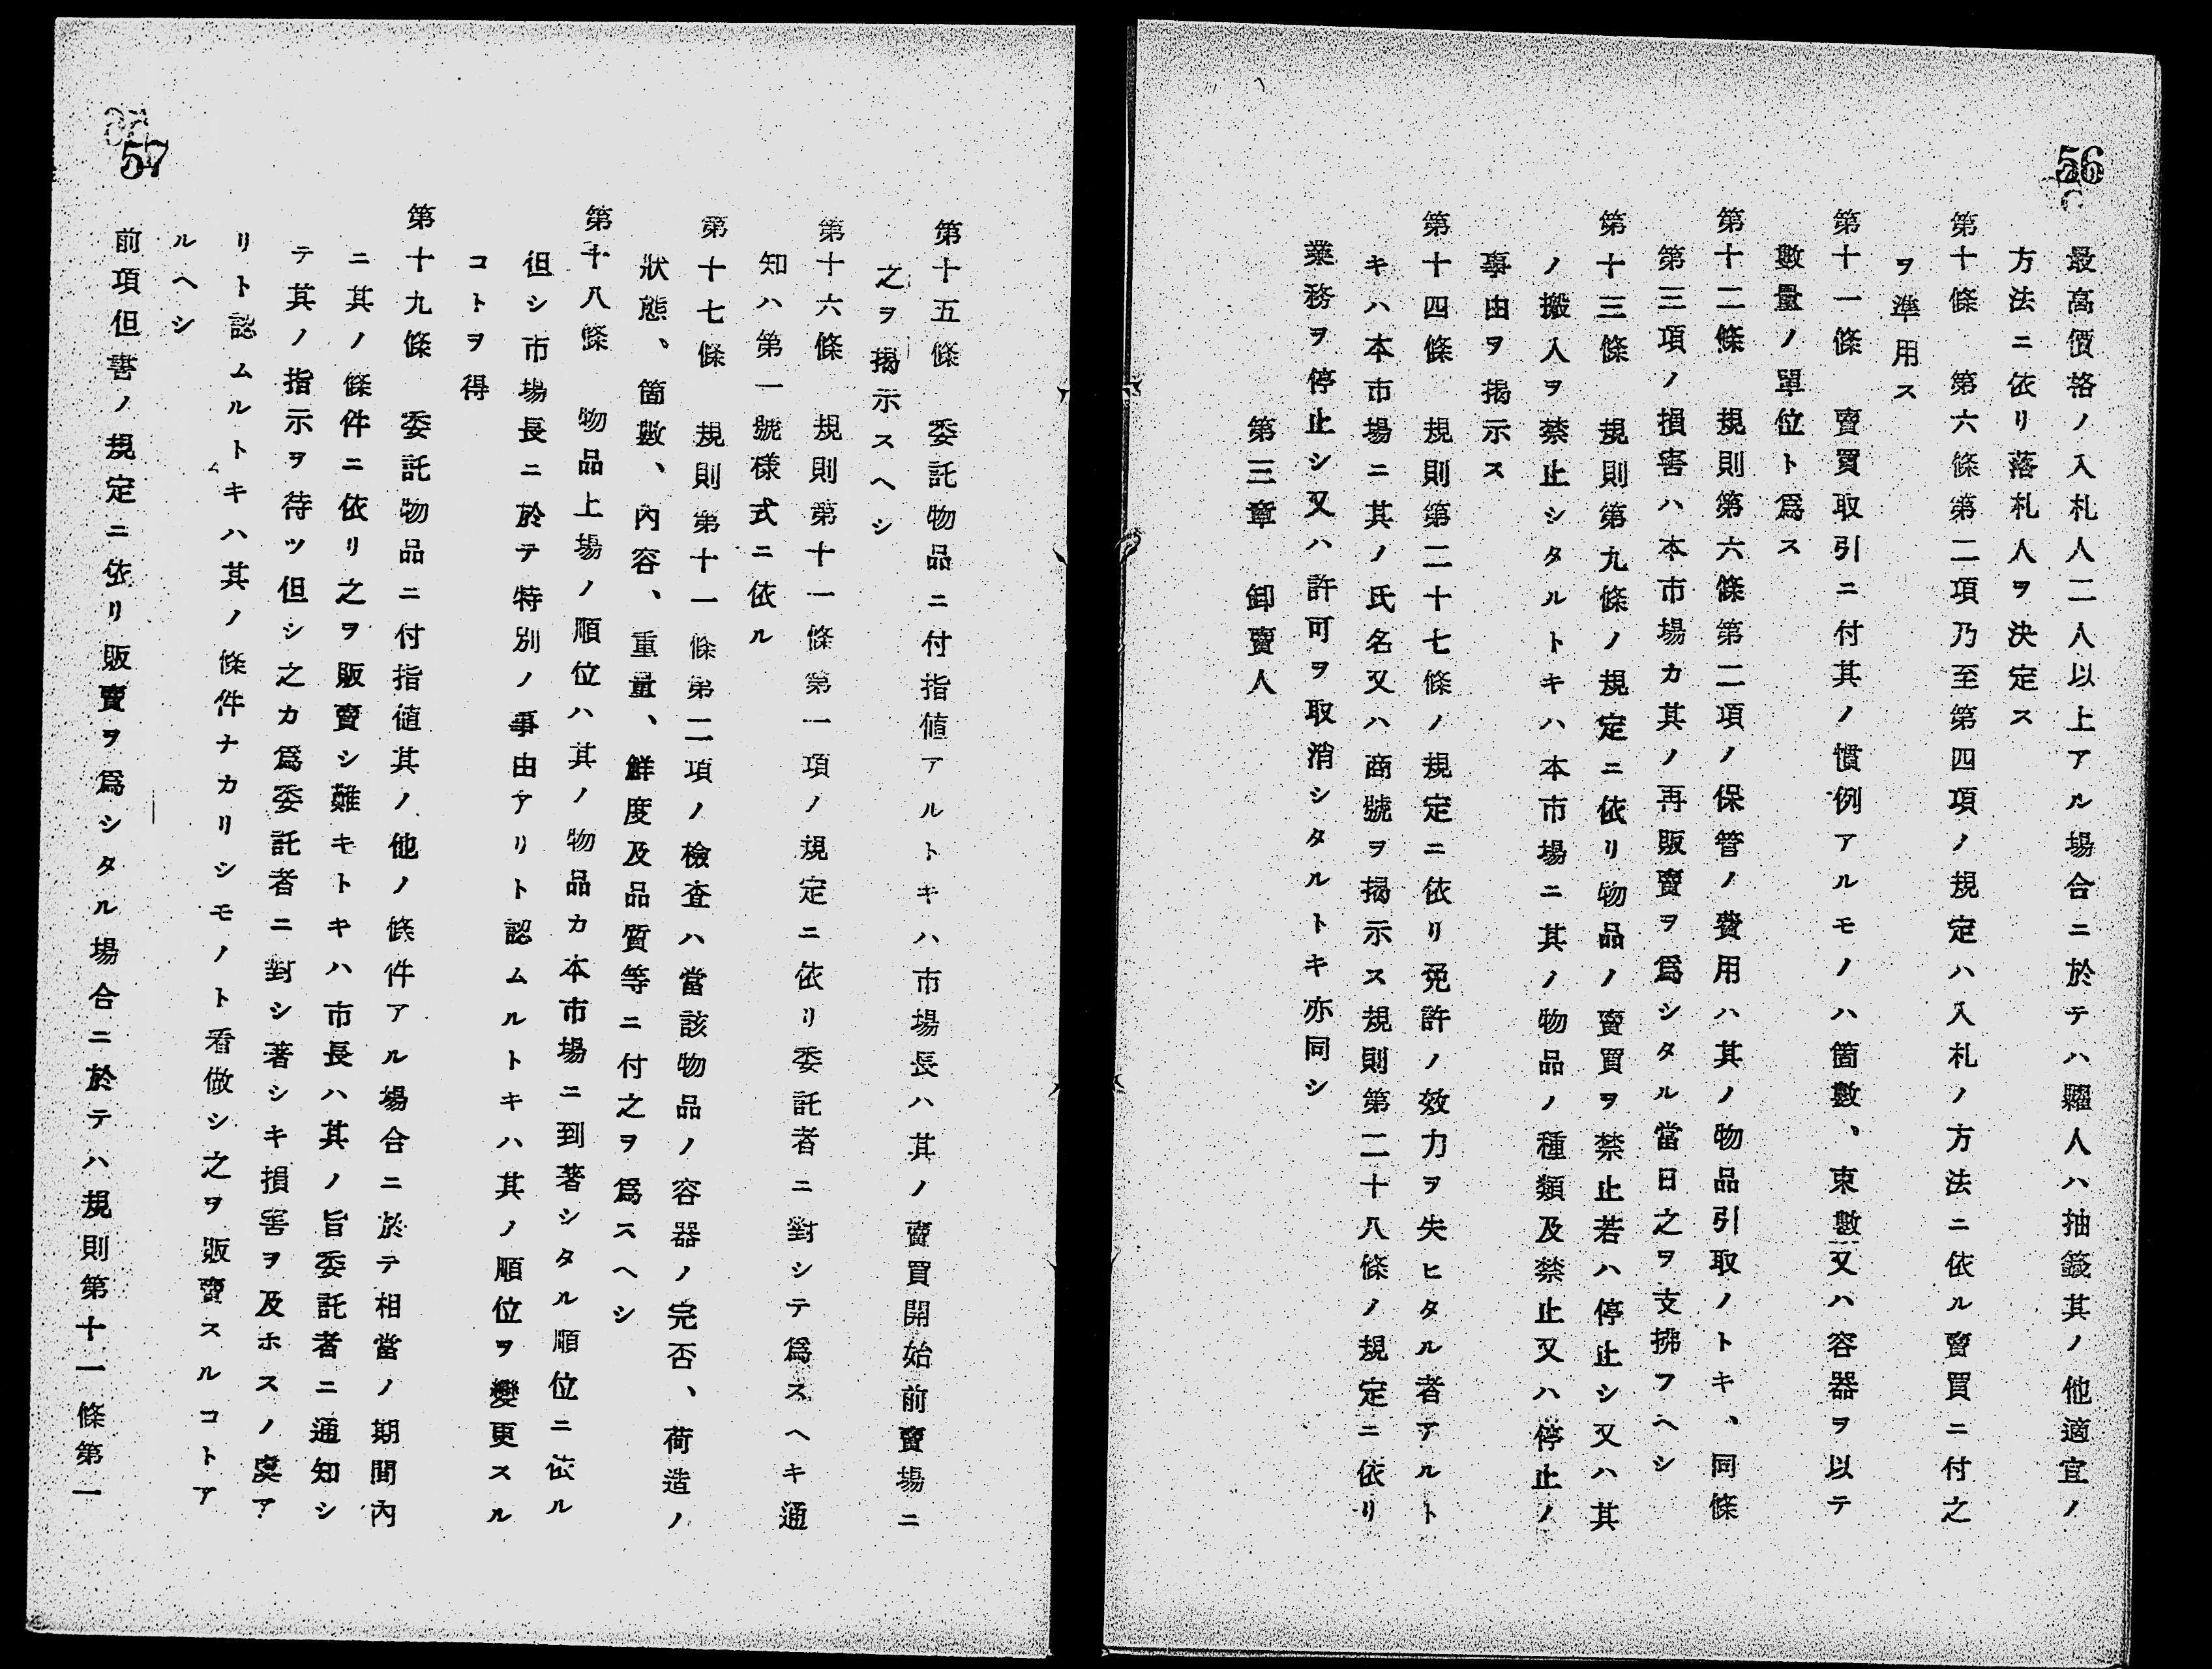 56
最高價格ノ入札人二人以上アル場合ニ於テハ糶人ハ抽籤其ノ他適宜ノ
方法ニ依リ落札人ヲ決定ス
第十條　第六條第二項乃至第四項ノ規定ハ入札ノ方法ニ依ル賣買ニ付之
ヲ準用ス
第十一條　賣買取引ニ付其ノ慣例アルモノハ箇數、束數又ハ容器ヲ以テ
數量ノ單位ト爲ス
第十二條　規則第六條第二項ノ保管ノ費用ハ其ノ物品引取ノトキ、同條
第三項ノ損害ハ本市場カ其ノ再販賣ヲ爲シタル當日之ヲ支拂フヘシ
第十三條　規則第九條ノ規定ニ依リ物品ノ賣買ヲ禁止若ハ停止シ又ハ其
ノ搬入ヲ禁止シタルトキハ本市場ニ其ノ物品ノ種類及禁止又ハ停止ノ
事由ヲ揭示ス
第十四條　規則第二十七條ノ規定ニ依リ免許ノ效力ヲ失ヒタル者アルト
キハ本市場ニ其ノ氏名又ハ商號ヲ揭示ス規則第二十八條ノ規定ニ依リ
業務ヲ停止シ又ハ許可ヲ取消シタルトキ亦同シ
第三章　卸賣人
第十五條　委託物品ニ付指値アルトキハ市場長ハ其ノ賣買開始前賣場ニ
之ヲ揭示スヘシ
第十六條　規則第十一條第一項ノ規定ニ依リ委託者ニ對シテ爲スヘキ通
知ハ第一號樣式ニ依ル
第十七條　規則第十一條第二項ノ檢査ハ當該物品ノ容器ノ完否、荷造ノ
狀態、箇數、內容、重量、鮮度及品質等ニ付之ヲ爲スヘシ
第十八條　物品上場ノ順位ハ其ノ物品カ本市場ニ到著シタル順位ニ依ル
但シ市場長ニ於テ特別ノ事由アリト認ムルトキハ其ノ順位ヲ變更スル
コトヲ得
第十九條　委託物品ニ付指値其ノ他ノ條件アル場合ニ於テ相當ノ期間內
ニ其ノ條件ニ依リ之ヲ販賣シ難キトキハ市長ハ其ノ旨委託者ニ通知シ
テ其ノ指示ヲ待ツ但シ之カ爲委託者ニ對シ著シキ損害ヲ及ホスノ虞ア
リト認ムルトキハ其ノ條件ナカリシモノト看做シ之ヲ販賣スルコトア
ルヘシ
前項但書ノ規定ニ依リ販賣ヲ爲シタル場合ニ於テハ規則第十一條第一
57